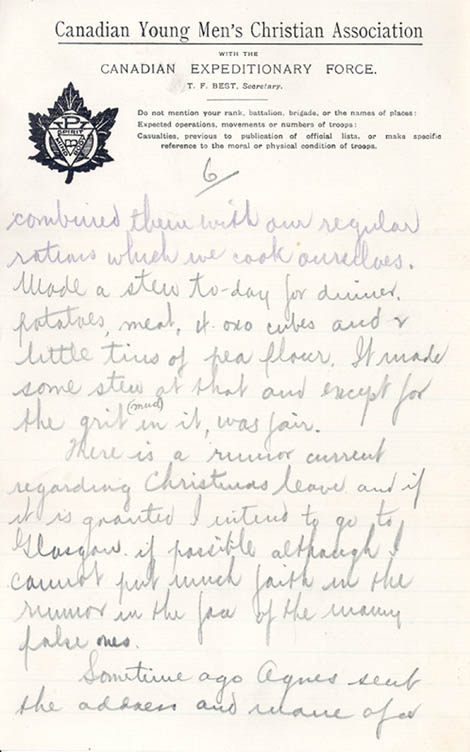 Canadian Young Men's Christian Association
WITH THE
CANADIAN EXPEDITIONARY FORCE.
T. F. BEST, Secretary.
Do not mention your rank, battalion, brigade, or the names of places:
Expected operations, movements or numbers of troops:
Casualties, previous to publication of official lists, or make specific
reference to the moral or physical condition of troops.
SPIRIT
MIND
BODY
6
combined them with our regular
rations which we cook ourselves.
Made a stew to-day for dinner.
potatoes, meat, 4 oxo cubes and 2
little tins of pea flour. It made
some stew at that and except for
the grit (mud) in it, was fair.
There is a rumor current
regarding Christmas leave and if
it is granted I intend to go to
Glasgow if possible although I
cannot put much faith in the
rumor in the face of the many
false ones.
Sometime ago Agnes sent
the address and name of a